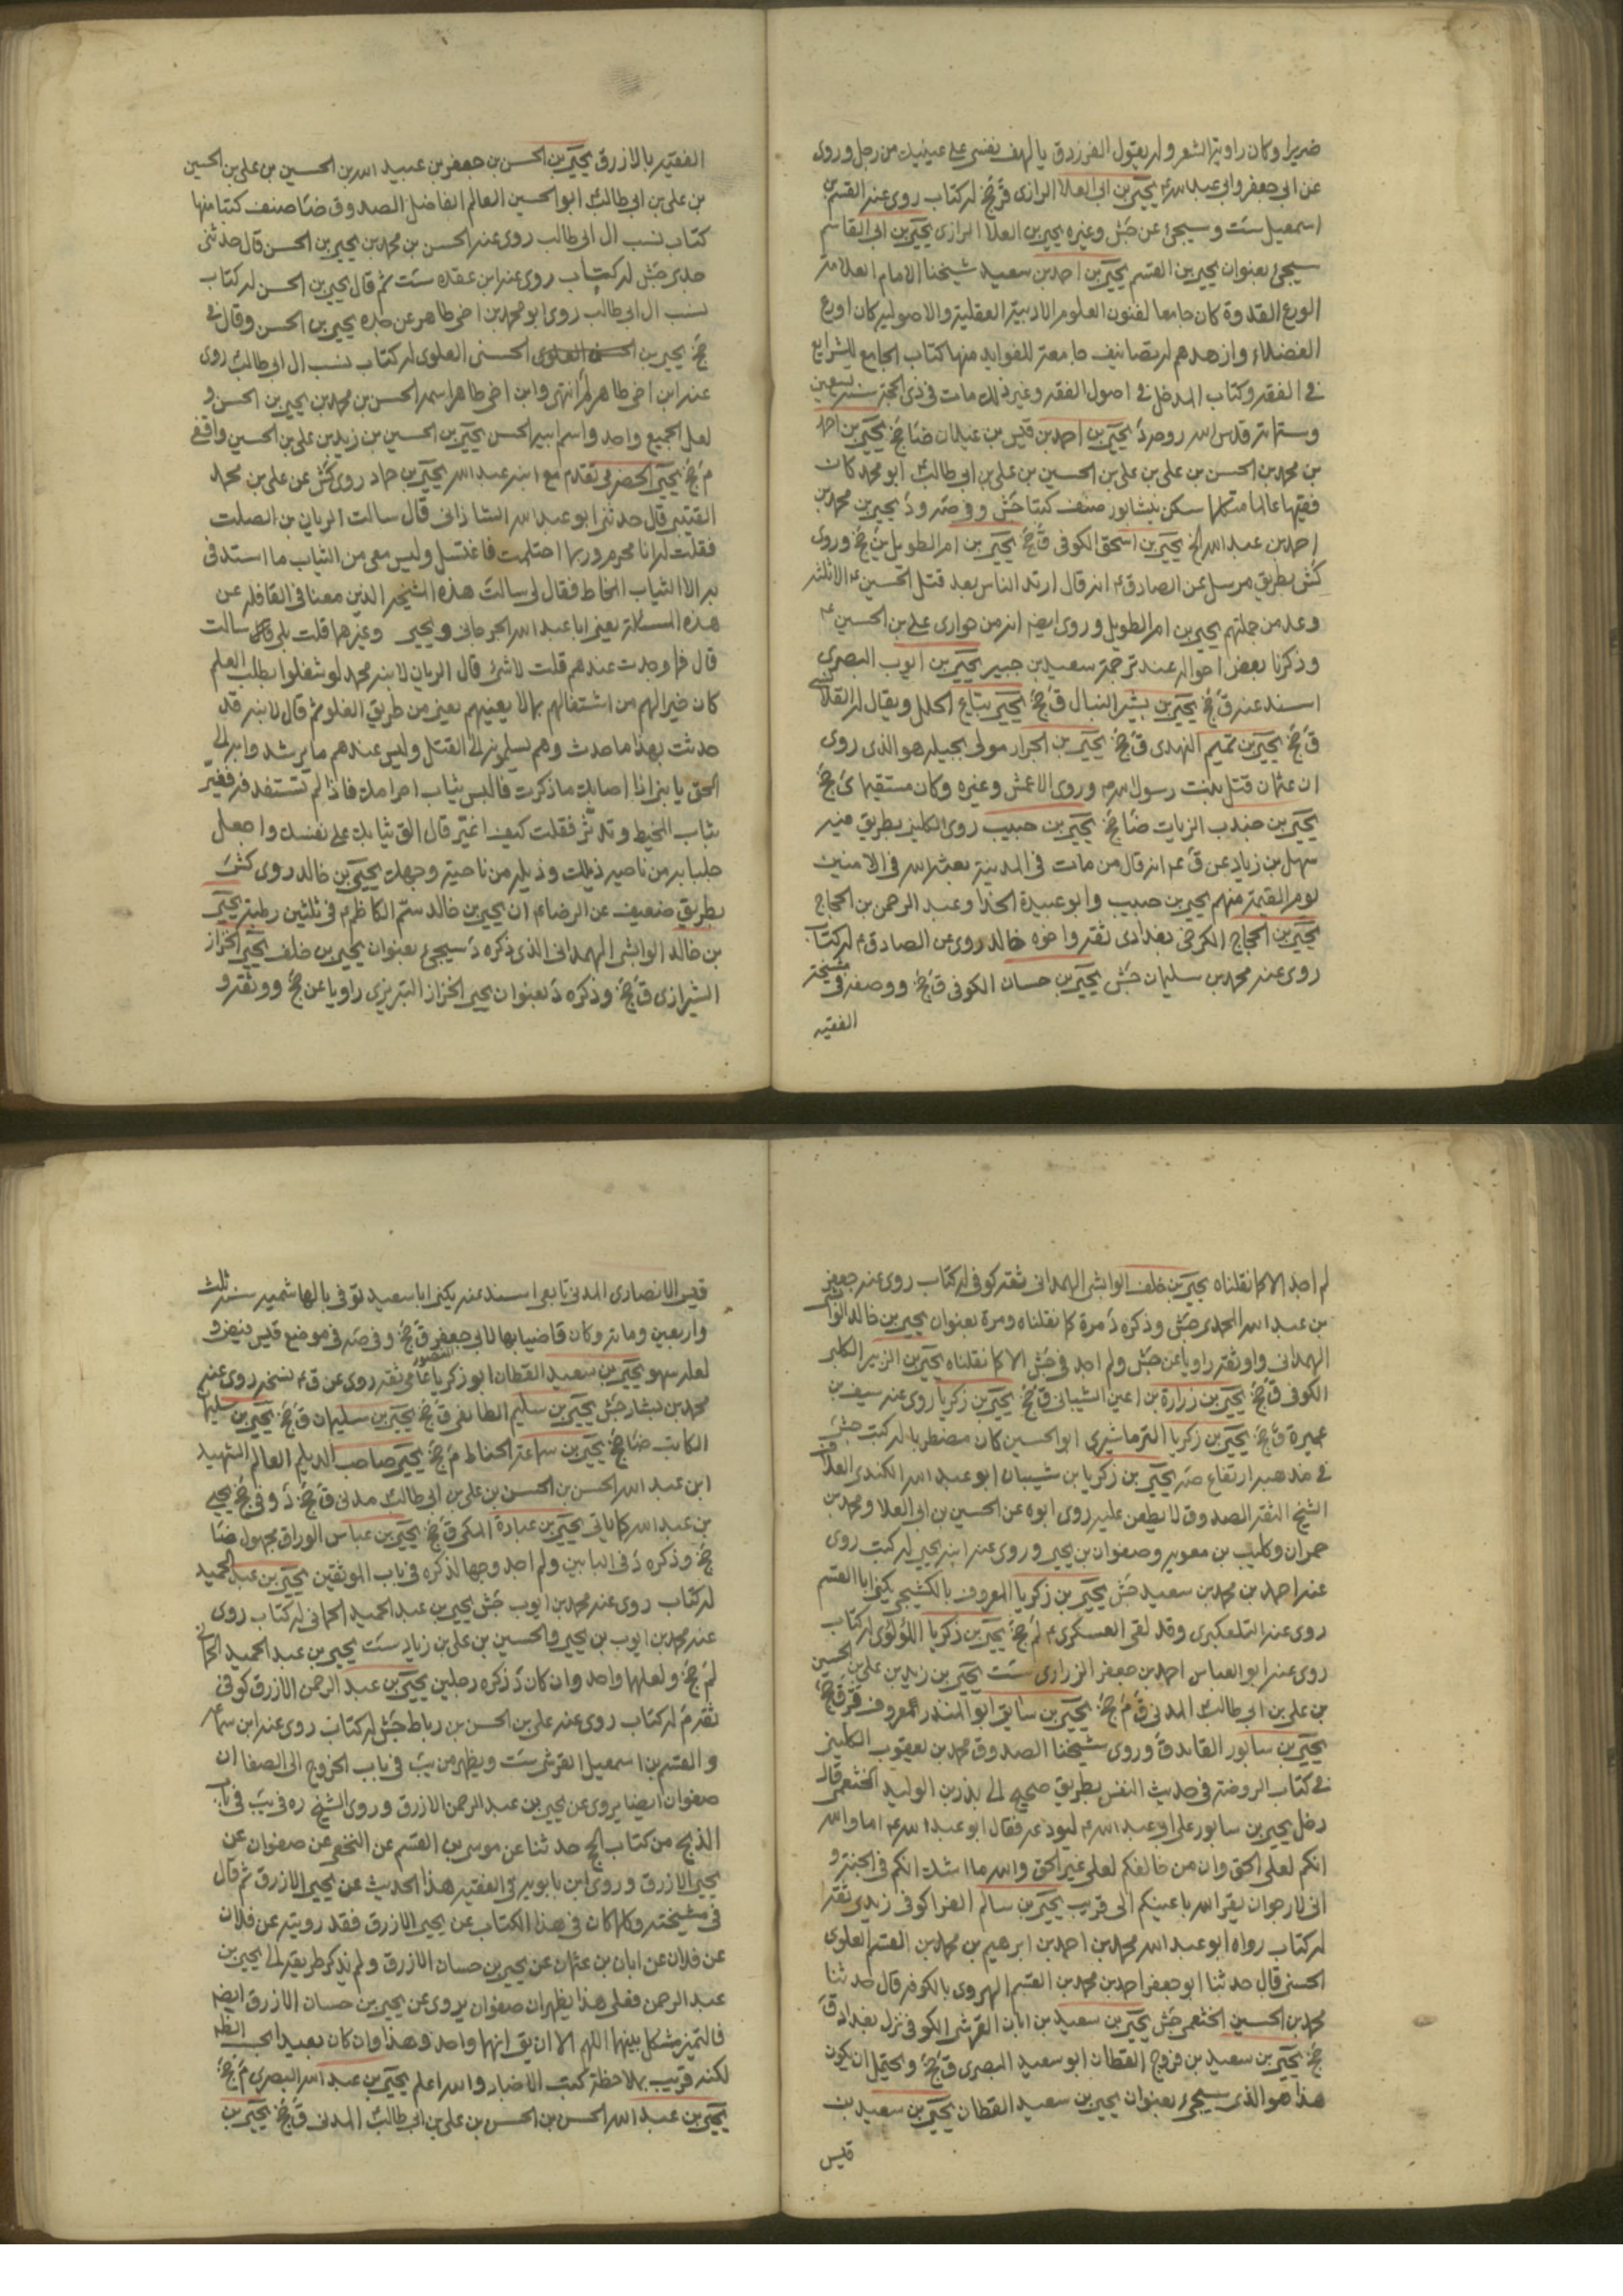 ضريرا وكان راوية الشعر وله يقول الفرزدق يا لهف نفسى على عينيك من رجل وروى
عن ابى جعفر وابى عبد الله ع يحيى بن ابى العلا الرازى ق جخ له كتاب روى عنه القسم بن
اسمعيل ست وسيجئ عن جش وغيره يحيى بن العلا الرازى يحيى بن ابى القاسم
سيجئ بعنوان يحيى بن القسم يحيى بن احمد بن سعيد شيخنا الامام العلامة
الورع القدوة كان جامعا لفنون العلوم الادبية العقلية والاصولية كان اورع
الفضلاء وازهدهم له تصانيف جامعة للفوايد منها كتاب الجامع للشرايع
فى الفقه وكتاب المدخل فى اصول الفقه وغير ذلك مات فى ذى الحجة سنة تسعين
وستمائة قدس الله روحه د يحيى بن احمد بن قيس بن غيلان ضا جخ يحيى بن احمد
بن محمد بن الحسن بن على بن على بن الحسين بن على بن ابى طالب ابو محمد كان
فقيها عالما متكلما سكن نيشابور صنف كتبا جش وفى صه ود يحيى بن محمد بن
احمد بن عبد الله الخ يحيى بن اسحق الكوفى ق جخ يحيى بن ام الطويل ين جخ وروى
كش بطريق مرسل عن الصادق ع انه قال ارتد الناس بعد قتل الحسين ع الا ثلثة
وعد من جملتهم يحيى بن ام الطويل وروى ايضا انه من حوارى على بن الحسين ع
وذكرنا بعض احواله عند ترجمة سعيد بن جبير يحيى بن ايوب البصرى
اسند عنه ق جخ يحيى بن بشير النبال ق جخ يحيى بياع الحلل ويقال له القلانسى
ق جخ يحيى بن تميم النهدى ق جخ يحيى بن الجرار مولى بجيلة هو الذى روى
ان عثمان قتل بنت رسول الله ص وروى الاعمش وغيره وكان مستقيما ى جخ
يحيى بن جندب الزيات ضا جخ يحيى بن حبيب روى الكلينى بطريق فيه
سهل بن زياد عن ق ع انه قال من مات فى المدينة بعثه الله فى الامنين
يوم القيمة منهم يحيى بن حبيب وابو عبيدة الحذا وعبد الرحمن بن الحجاج
يحيى بن الحجاج الكرخى بغدادى ثقة واخوه خالد روى عن الصادق ع له كتاب
روى عنه محمد بن سليمان جش يحيى بن حسان الكوفى ق جخ ووصفه فى مشيخة
الفقيه
الفقيه بالازرق يحيى بن الحسن بن جعفر بن عبيد الله بن الحسين بن على بن الحسين
بن على بن ابى طالب ابو الحسين العالم الفاضل الصدوق ضا صنف كتبا منها
كتاب نسب ال ابى طالب روى عنه الحسن بن محمد بن يحيى بن الحسن قال حدثنى
جدى جش له كتاب روى عنه ابن عقده ست ثم قال يحيى بن الحسن له كتاب
نسب ال ابى طالب روى ابو محمد بن اخى طاهر عن جده يحيى بن الحسن وقال فى
جخ يحيى بن الحسن العلوى الحسنى العلوى له كتاب نسب ال ابى طالب روى
عنه ابن اخى طاهر لم انتهى وابن اخى طاهر اسمه الحسن بن محمد بن يحيى بن الحسن و
لعل الجميع واحد واسم ابيه الحسن يحيى بن الحسين بن زيد بن على بن الحسين واقفى
م جخ يحيى الحضرمى تقدم مع ابنه عبد الله يحيى بن حماد روى كش عن على بن محمد
القتيبى قال حدثنى ابو عبد الله الشاذانى قال سالت الريان بن الصلت
فقلت له انا محرم وربما احتلمت فاغتسل وليس معى من الثياب ما استدفى
به الا الثياب المخاط فقال لى سالت هذه المشيخة الذين معنا فى القافلة عن
هذه المسئلة يعنى ابا عبد الله الجرجانى ويحيى وغيرهما قلت بلى قد سالت
قال فما وجدت عندهم قلت لا شئ قال الريان لابنه محمد لو شغلوا بطلب العلم
كان خيرا لهم من اشتغالهم بما لا يعنيهم يعنى من طريق الغلو ثم قال لابنه قد
حدثت بهذا ما حدث وهم يسلمونه الى القتل وليس عندهم ما يرشد وابه الى
الحق يا بنى اذا اصابك ما ذكرت فالبس ثياب احرامك فاذا لم تستدفئ به فغير
ثياب المخيط وتدثر فقلت كيف اغير قال الق ثيابك على نفسك واجعل
جلبابه من ناحية ذيلك وذيله من ناحية وجهك يحيى بن خالد روى كش
بطريق ضعيف عن الرضا ع ان يحيى بن خالد سم الكاظم ع فى ثلثين رطبة يحيى
بن خالد الوابشى الهمدانى الذى ذكره د سيجئ بعنوان يحيى بن خلف يحيى الخزاز
الشيرازى ق جخ وذكره د بعنوان يحيى الخزاز التبريزى راويا عن جخ ووثقه و
لم اجد الا كما نقلناه يحيى بن خلف الوابشى الهمدانى ثقة كوفى له كتاب روى عنه جعفر
بن عبد الله المحمدى جش وذكره د مرة كما نقلناه ومرة بعنوان يحيى بن خالد الوابشى
الهمدانى واوثقه راويا عن جش ولم اجد فى جش الا كما نقلناه يحيى بن الزبير الكلبى
الكوفى ق جخ يحيى بن زرارة بن اعين الشيبانى ق جخ يحيى بن زكريا روى عنه سيف بن
عميرة ق جخ يحيى بن زكريا الترماشيرى ابو الحسين كان مضطربا له كتب جش
فى مذهبه ارتفاع صه يحيى بن زكريا بن شيبان ابو عبد الله الكندى العلاف
الشيخ الثقة الصدوق لا يطعن عليه روى ابوه عن الحسين بن ابى العلا ومحمد بن
حمران وكليب بن معوية وصفوان بن يحيى وروى عنه ابنه يحيى له كتب روى
عنه احمد بن محمد بن سعيد جش يحيى بن زكريا المعروف بالكشيخى يكنى ابا القسم
روى عنه التلعكبرى وقد لقى العسكرى ع لم جخ يحيى بن زكريا اللؤلؤى له كتاب
روى عنه ابو العباس احمد بن جعفر الزرارى ست يحيى بن زيد بن على بن الحسين
بن على بن ابى طالب المدنى ق م جخ يحيى بن سابق ابو المنذر المعروف ق جخ
يحيى بن سابور القائد ق وروى شيخنا الصدوق محمد بن يعقوب الكلينى
فى كتاب الروضة فى حديث النفس بطريق صحيح الى بدر بن الوليد الخثعمى قال
دخل يحيى بن سابور على ابى عبد الله ع ليودعه فقال ابو عبد الله ع اما والله
انكم لعلى الحق وان من خالفكم لعلى غير الحق والله ما اشك انكم فى الجنة و
انى لارجو ان يقر الله باعينكم الى قريب يحيى بن سالم الفرا كوفى زيدى ثقة
له كتاب رواه ابو عبد الله محمد بن احمد بن ابرهيم بن محمد بن القسم العلوى
الحسنى قال حدثنا ابو جعفر احمد بن محمد بن القسم الهروى بالكوفه قال حدثنا
محمد بن الحسين الخثعمى جش يحيى بن سعيد بن ابان القرشى الكوفى نزل بغداد ق
جخ يحيى بن سعيد بن فروج القطان ابو سعيد البصرى ق جخ ويحتمل ان يكون
هذا هو الذى سيجئ بعنوان يحيى بن سعيد القطان يحيى بن سعيد بن
قيس
قيس الانصارى المدنى تابعى اسند عنه يكنى ابا سعيد توفى بالهاشمية سنة ثلث
واربعين ومائة وكان قاضيا بها لابى جعفر ق جخ وفى صه فى موضع قيس فيض و
لعله سهو يحيى بن سعيد القطان ابو زكريا عامى ثقة روى عن ق ع نسخة روى عنه
محمد بن بشار جش يحيى بن سليم الطائفى ق جخ يحيى بن سليمان ق جخ يحيى بن سليمان
الكاتب ضا جخ يحيى بن سماعة الحناط م جخ يحيى صاحب الديلم العالم الشهيد
ابن عبد الله الحسن بن الحسن بن على بن ابى طالب مدنى ق جخ د وفى جخ يحيى
بن عبد الله كما ياتى يحيى بن عبادة المكى ق جخ يحيى بن عباس الوراق مجهول ضا
جخ وذكره د فى البابين ولم اجد وجها لذكره فى باب الموثقين يحيى بن عبد الحميد
له كتاب روى عنه محمد بن ايوب جش يحيى بن عبد الحميد الحمانى له كتاب روى
عنه محمد بن ايوب بن يحيى والحسين بن على بن زياد ست يحيى بن عبد الحميد الحمانى
لم جخ ولعلهما واحد وان كان د ذكره رجلين يحيى بن عبد الرحمن الازرق كوفى
ثقة م له كتاب روى عنه على بن الحسن بن رباط جش له كتاب روى عنه ابن سماعه
والقسم بن اسمعيل القرشى ست ويظهر من يب فى باب الخروج الى الصفا ان
صفوان ايضا يروى عن يحيى بن عبد الرحمن الازرق وروى الشيخ ره فى يب فى باب
الذبح من كتاب الحج حدثنا عن موسى بن القسم عن النخعى عن صفوان عن
يحيى الازرق وروى ابن بابويه فى الفقيه هذا الحديث عن يحيى الازرق ثم قال
فى مشيخته وكلما كان فى هذا الكتاب عن يحيى الازرق فقد رويته عن فلان
عن فلان عن ابان بن عثمان عن يحيى بن حسان الازرق ولم يذكر طريقه الى يحيى بن
عبد الرحمن فعلى هذا يظهر ان صفوان يروى عن يحيى بن حسان الازرق ايضا
فالتميز مشكل بينهما اللهم الا ان يق انهما واحد وهذا وان كان بعيدا بحسب الظ
لكنه قريب بملاحظة كتب الاخبار والله اعلم يحيى بن عبد الله البصرى م جخ
يحيى بن عبد الله الحسن بن الحسن بن على بن ابى طالب المدنى ق جخ يحيى بن